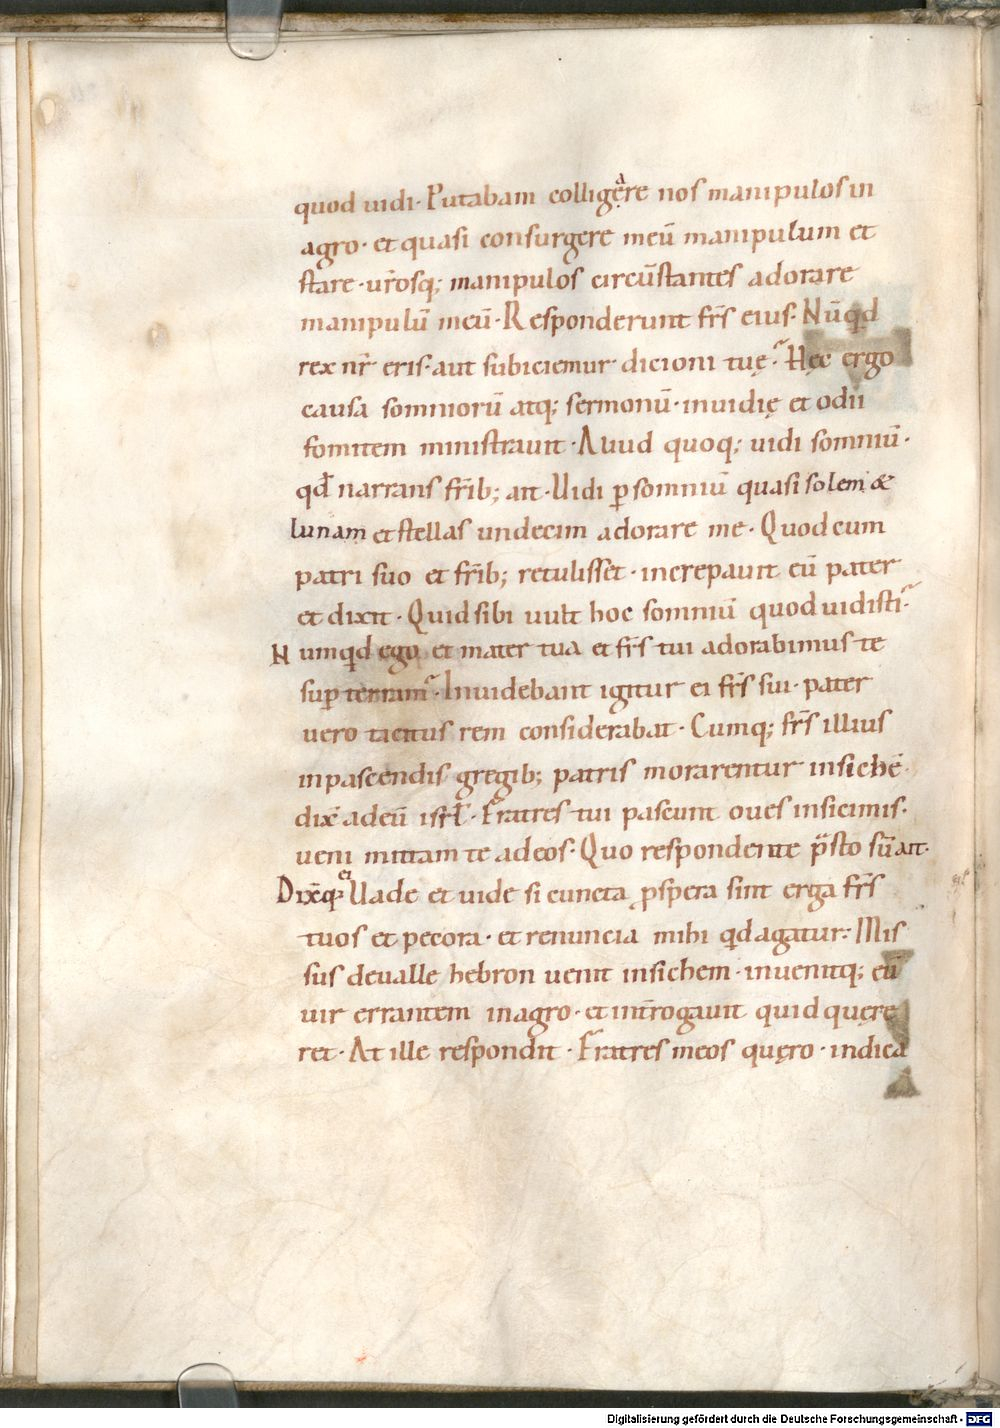 quod uidi· Putabam colligere nos manipulos in
agro· et quasi consurgere meū manipulum et
stare· ur̄osq; manipulos circūstantes adorare
manipulū meū· Responderunt fr̄s eius· Nūqd
rex nr̄ eris· aut subiciemur dicioni tuę· Hęc ergo
causa somniorū atq; sermonū· inuidię et odii
fomitem ministrauit· Aliud quoq; uidi somniū·
qđ narrans fr̄ib; ait· Uidi p somniū quasi solem &
lunam et stellas undecim adorare me· Quod cum
patri suo et fr̄ib; retulisset· increpauit eū pater
et dixit· Quid sibi uult hoc somniū quod uidisti·
Numqd ego et mater tua et fr̄s tui adorabimus te
sup terram· Inuidebant igitur ei fr̄s sui· pater
uero tacitus rem considerabat· Cumq; fr̄s illius
in pascendis gregib; patris morarentur in sichē·
dix̄ ad eū isrł· Fratres tui pascunt oues in sicimis·
ueni mittam te ad eos· Quo respondente p̄sto sū ait·
ei
Dix̄q; Uade et uide si cuncta prospera sint erga fr̄s
tuos et pecora· et renuncia mihi qd agatur· Mis
sus de ualle hebron uenit in sichem· inuenitq; eū
uir errantem in agro· et int̄rogauit quid quęre
ret· At ille respondit· Fratres meos quęro· indica
Digitalisierung gefördert durch die Deutsche Forschungsgemeinschaft - DFG